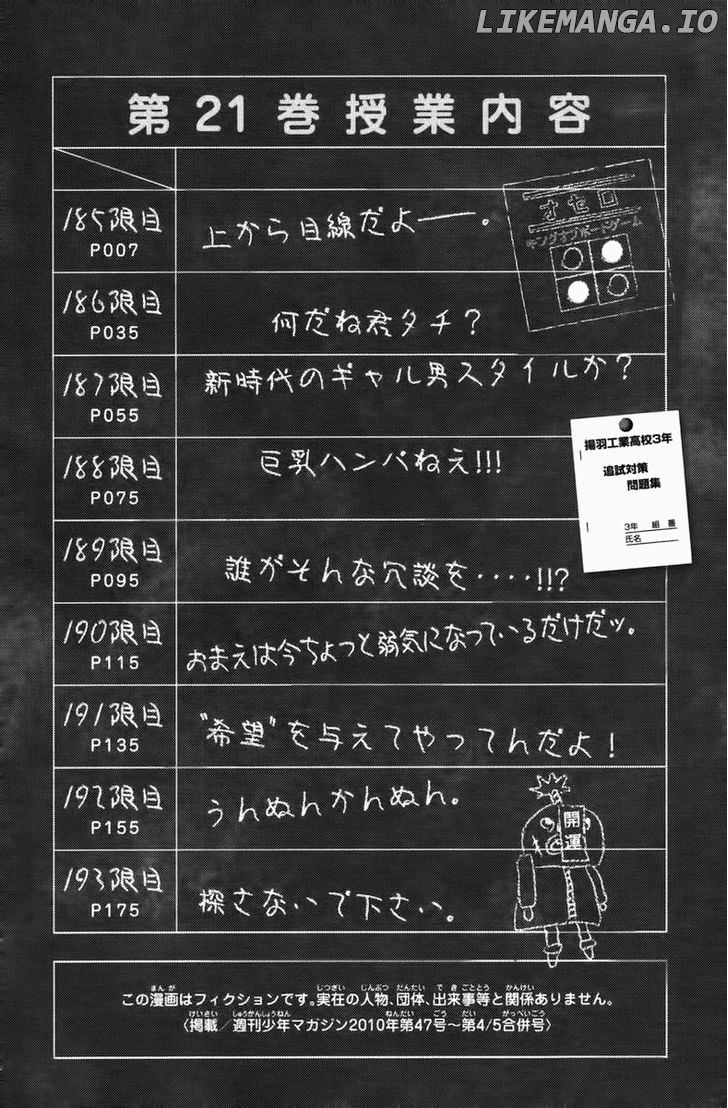 LIKEMANGA.IO
第21巻授業内容
185限目
P007
上から目線だよ――。
オセロ
キングオブボードゲーム
186限目
P035
何だね君タチ？
187限目
P055
新時代のギャル男スタイルか？
188限目
P075
巨乳ハンパねえ!!!
揚羽工業高校3年
追試対策
問題集
3年 組 番
氏名
189限目
P095
誰がそんな冗談を‥‥!!?
190限目
P115
おまえは今ちょっと弱気になっているだけだッ。
191限目
P135
"希望"を与えてやってんだよ！
192限目
P155
うんぬんかんぬん。
開運
193限目
P175
探さないで下さい。
まんが じつざい じんぶつ だんたい できごととう かんけい
この漫画はフィクションです。実在の人物、団体、出来事等と関係ありません。
けいさい しゅうかんしょうねん ねんだい ごう だい がっぺいごう
〈掲載／週刊少年マガジン2010年第47号～第4/5合併号〉